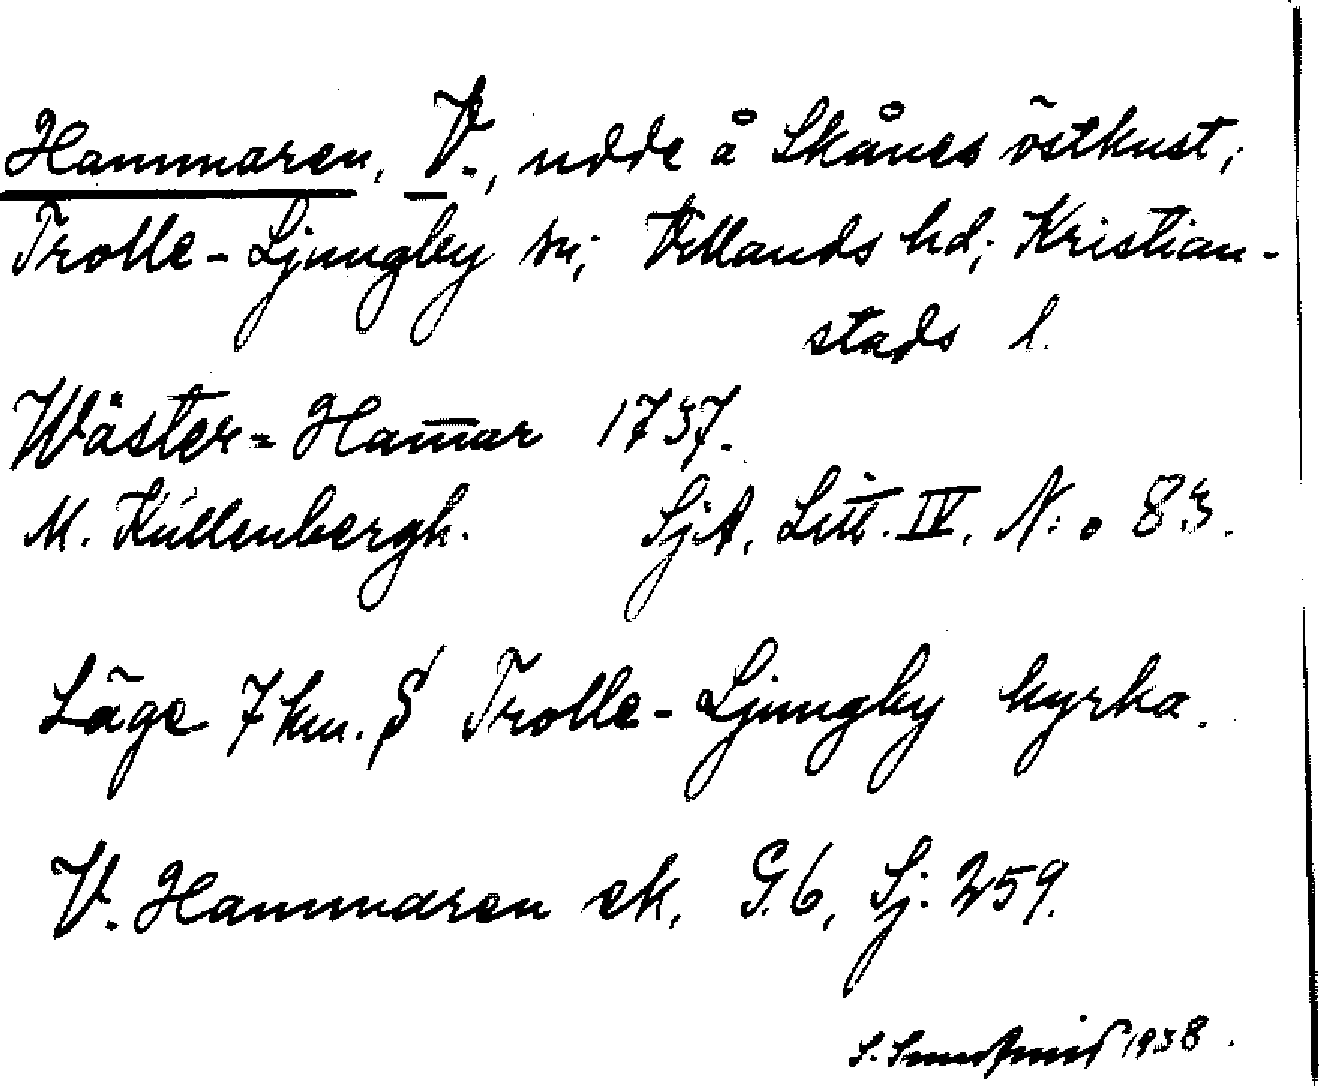 Hammaren, V., udde å Skånes östkust;
Trolle-Ljungby sn; Villands hd; Kristian-
stads l.
Wäster=Ham̄ar 1737.
M. Kullenbergh. SjA. Litt. IV. N:o 83.
Läge 7 km. S Trolle-Ljungby kyrka.
V. Hammaren ek. G.6, Sj. 259.
1938.